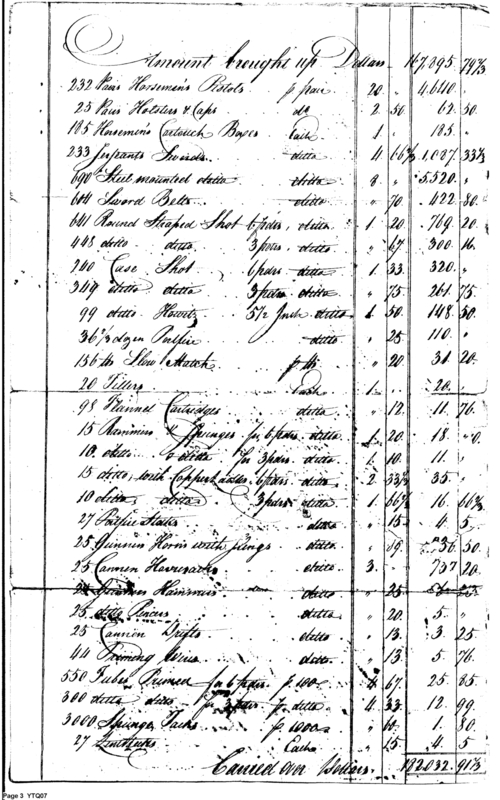 Amount brought up Dollars 167,395 79⅔
232 Pairs Horsemen's Pistols p pair 20 „ 4,640 „
25 Pairs Holsters & Caps do 2 50 62 50
185 Horsemen's Cartouch Boxes Each 1 „ 185 „
233 Serjeants Swords ditto 4 66⅔ 1,087 33⅓
690 Steel mounted ditto ditto 8 „ 5,520 „
604 Sword Belts ditto „ 70 422 80
641 Round Straped Shot 6 pdrs, ditto 1 20 769 20
448 ditto ditto 3 pdrs ditto „ 67 300 16
240 Case Shot 6 pdrs ditto 1 33 320 „
349 ditto ditto 3 pdrs ditto „ 75 261 75
99 ditto Howitz 5½ Inch ditto 1 50 148 50
36⅔ dozen Portfire ditto „ 25 110 „
156 lbs Slow Match p lb „ 20 31 20
20 Tillers Each 1 „ 20 „
98 Flannel Cartridges ditto „ 12 11 76
15 Rammers & Spunges for 6 pdrs ditto 1 20 18 „
10 ditto & ditto for 3 pdrs ditto 1 10 11 „
15 ditto with Copper Ladles 6 pdrs ditto 2 33⅓ 35 „
10 ditto ditto 3 pdrs ditto 1 66⅔ 16 66⅔
27 Portfire Staves ditto „ 15 4 5
25 Gunners Horns with slings ditto
25 Cannon Haversacks ditto 3
25 Gunners Hammers ditto „ 25
25 ditto Pincers ditto „ 20 5 „
25 Cannon Drifts ditto „ 13 3 25
44 Priming Wires ditto „ 13 5 76
550 Tubes Primed for 6 pdrs p 100 4 67 25 85
300 ditto ditto for 3 pdrs p ditto 4 33 12 99
3000 Spunge Tacks p 1000 „ 60 1 80
27 Linstocks Each „ 15 4 5
Carried over Dollars 182,032 91⅓
Page 3 YTQ07